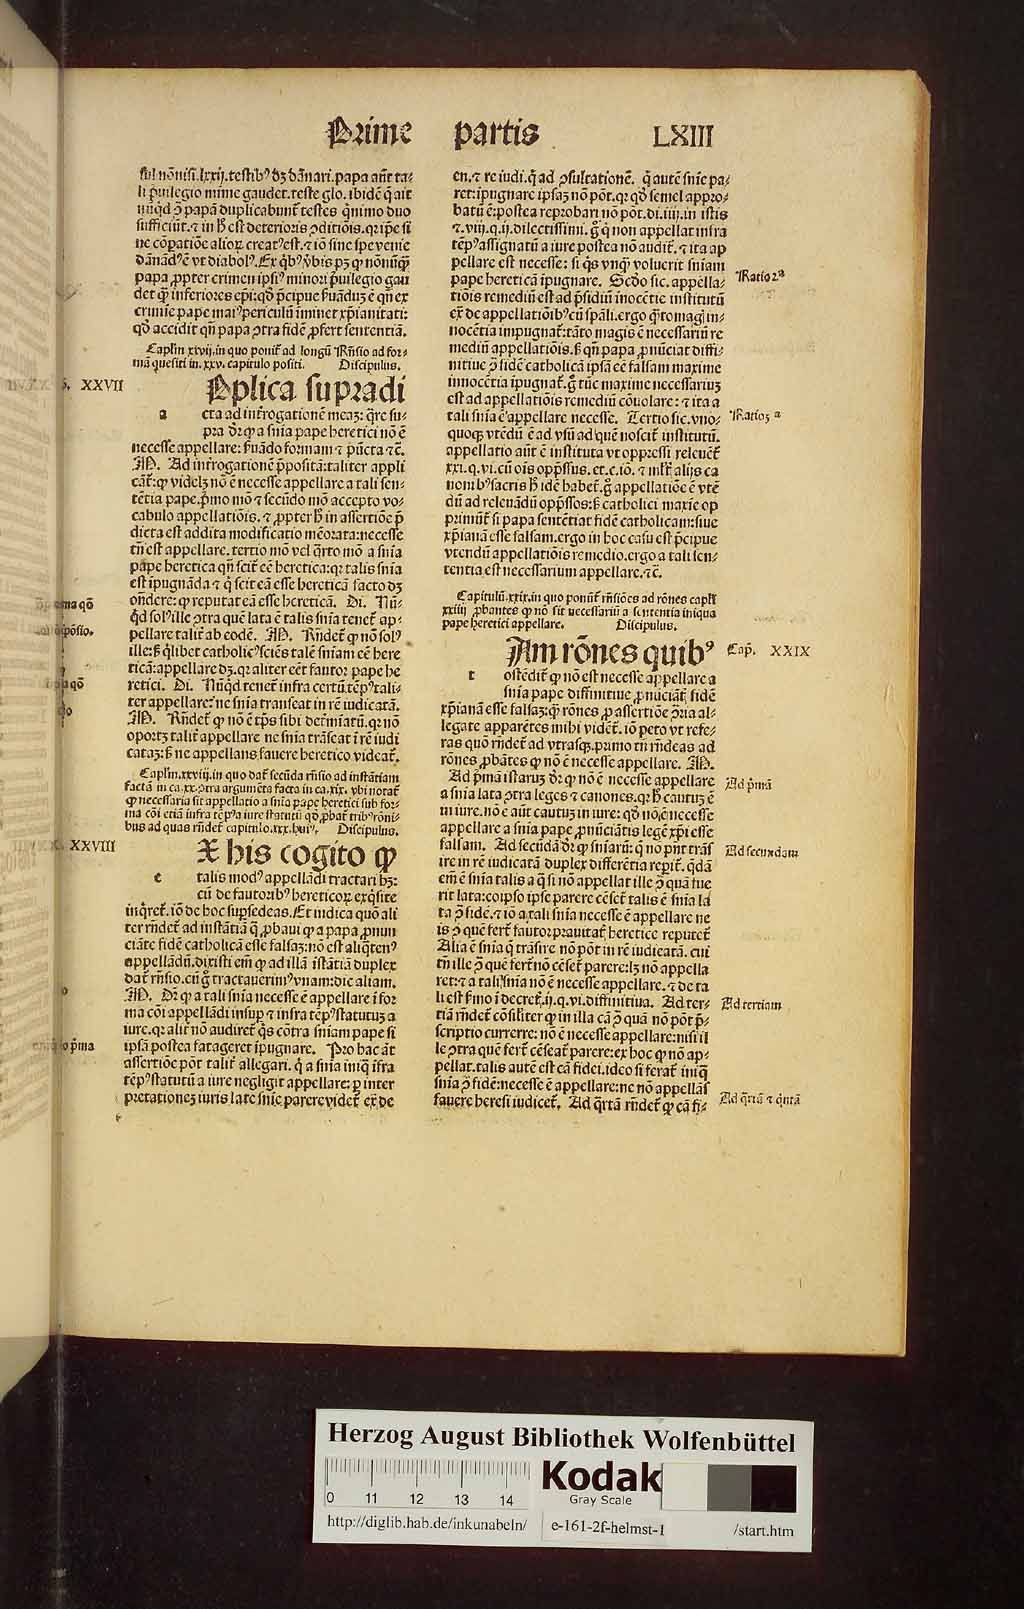 Prime partis LXIII
sul nōnisi.lxxij.testibꝰ dꝫ dānari.papa aūt ta-
li p̄uilegio mīme gaudet.teste glo.ibidē q̇ ait
nūqd ꝯ papā duplicabunt᷑ testes q̇nimo duo
sufficiūt.⁊ in hͦ est deterioris ꝯditiōis.qꝛ ip̄e si
ne cōp̱atiōe alioꝝ creatꝰest.⁊ iō sine spe venie
dānādꝰē vt diabolꝰ.Ex q̇bꝰ v̇bis pꝫ ꝙ nonūq̄ꝫ
papa ꝓpter crimen ipsiꝰ minori p̄uilegio gau
det q̄ꝫ inferiores ep̄i:qd̓ p̄cipue ẜuāduꝫ ē qn̄ ex
crimīe pape maiꝰ periculū īminet xp̄ianitati:
qd̓ accidit qn̄ papa ꝯtra fidē ꝓfert sententiā.
Caplm̄ xxvij.in quo ponit᷑ ad longū Rn̄sio ad for-
mā quesiti in.xxv.capitulo positi. Discipulus.
XXVII
Pplica supradi
a cta ad int̓rogationē meaꝫ:q̄re su-
pra dr̄ ꝙ a snīa pape heretici nō ē
necesse appellare:ẜuādo formam ⁊ pūcta ⁊c̄.
M. Ad int̓rogationē p̄positā:taliter appli
cāt᷑:ꝙ videlꝫ nō ē necesse appellare a tali sen-
tētia pape.p̓mo mō ⁊ secūdo mō accepto vo-
cabulo appellatiōis.⁊ ꝓpter hͦ in assertiōe p̄
dicta est addita modificatio mēorata:necesse
tn̄ est appellare.tertio mō vel q̄rto mō a snīa
pape heretica qn̄ scit eē heretica:qꝛ talis snīa
est īpugnāda ⁊ q̇ scit eā esse hereticā facto dꝫ
on̄dere:ꝙ reputat eā esse hereticā. Di. Nū-
q̇d solꝰille ꝯtra quē lata ē talis snīa tenet᷑ ap-
pellare talit᷑ ab eodē. M. Rn̄det᷑ ꝙ nō solꝰ
ille:ẜ q̇libet catholicꝰsciēs talē snīam eē here
ticā:appellare dꝫ.qꝛ aliter eēt fautor pape he
retici. Di. Nūq̇d tenet᷑ infra certū tēpꝰtali-
ter appellare:ne snīa transeat in rē iudicatā.
M. Rn̄det᷑ ꝙ nō ē tp̄s sibi det̓miatū.qꝛ nō
oportꝫ talit᷑ appellare ne snīa trāseat ī rē iudi
cataꝫ:ẜ ne appellans fauere heretico videat᷑.
Caplm̄.xxviij.in quo dat᷑ secūda rn̄sio ad instātiam
factā in ca.xx.ꝯtra argumēta facta in ca.xix. vbi notat᷑
ꝙ necessaria sit appellatio a snīa pape heretici sub for-
ma cōi etiā infra tēpꝰa iure statutū qd̓ ꝓbat᷑ tribꝰrōni-
bus ad quas rn̄det᷑ capitulo.xxx.huiꝰ. Discipulus.
XXVIII
X his cogito ꝙ
e talis modꝰ appellādi tractari hꝫ:
cū de fautoribꝰ hereticoꝝ exq̇site
inq̇ret᷑.iō de hoc suꝑsedeas.Et indica quō ali
ter rn̄det᷑ ad instātiā q̄ ꝓbaui ꝙ a papa ꝓnun
ciāte fidē catholicā esse falsaꝫ:nō est aliq̇tenꝰ
appellādū.dixisti em̄ ꝙ ad illā īstātiā duplex
dat᷑ rn̄sio.cū g̊ tractauerimꝰvnam:dic aliam.
M. Dr̄ ꝙ a tali snīa necesse ē appellare ī for
ma cōi appellādi insuꝑ ⁊ infra tēpꝰstatutuꝫ a
iure.qꝛ alit᷑ nō audiret᷑ q̇s cōtra snīam pape si
ipsā postea satageret īpugnare. Pro hac āt
assertiōe pōt talit᷑ allegari. q̇ a snīa iniq̄ īfra
tēpꝰstatutū a iure negligit appellare:ꝑ inter
pretationeꝫ iuris late snīe parere videt᷑ ex̄ de
en.⁊ re iudi.q̄ ad ꝯsultationē. q̇ autē snīe pa-
ret:ipugnare ipsaꝫ nō pōt.qꝛ qd̓ semel appro-
batū ē:postea reprobari nō pōt.di.iiij.in istis
⁊.viij.q.ij.dilectissimi.g̊ q̇ non appellat infra
tēpꝰassignatū a iure postea nō audit᷑.⁊ ita ap
pellare est necesse: si q̇s vnq̄ꝫ voluerit snīam
pape hereticā īpugnare. Scd̓o sic.appella-
tiōis remediū est ad p̄sidiū inocētie institutū
ex̄ de appellatiōibꝰcū spāli.ergo q̄to magꝭ in-
nocētia impugnat᷑:tāto magis ē necessariū re
mediū appellatiōis.ẜ qn̄ papa ꝓnūciat diffi-
nitiue ꝯ fidē catholicā ipsā eē falsam maxime
innocētia īpugnat᷑.g̊ tūc maxime necessariuꝫ
est ad appellatiōis remediū cōuolare:⁊ ita a
tali snīa ē appellare necesse. Tertio sic.vno-
quoqꝫ vtēdū ē ad vsū ad quē noscit᷑ institutū.
appellatio aūt ē instituta vt oppressi releuēt᷑
xxi.q.vi.cū oīs opp̄ssus.et.c.iō.⁊ ml̓t̓ alijs ca
nonibꝰsacris hͦ idē habet᷑.g̊ appellatiōe ē vtē
dū ad releuādū opp̄ssos:ẜ catholici maxie op
primūt᷑ si papa sentētiat fidē catholicam:siue
xp̄ianā esse falsam.ergo in hoc casu est p̄cipue
vtendū appellatiōis remedio.ergo a tali sen-
tentia est necessarium appellare.⁊c̄.
Capitulū.xxix.in quo ponūt᷑ rn̄siōes ad rōnes capl̓i
xxiiij ꝓbantes ꝙ nō sit necessariū a sententia iniqua
pape heretici appellare. Discipulus.
Am rōnes quibꝰ
t ostēdit᷑ ꝙ nō est necesse appellare a
snīa pape diffinitiue ꝓnūciāt᷑ fidē
xp̄ianā esse falsaꝫ:ꝙ rōnes ꝓ assertiōe ꝯr̄ia al-
legate apparētes mihi vidēt᷑.iō peto vt refe-
ras quō rn̄det᷑ ad vtrasqꝫ.primo tn̄ rn̄deas ad
rōnes ꝓbātes ꝙ nō ē necesse appellare. M.
Ad p̄mā istaruꝫ dr̄:ꝙ nō ē necesse appellare
a snīa lata ꝯtra leges ⁊ canones.qꝛ hͦ cautuꝫ ē
in iure.nō ē aūt cautuꝫ in iure: qd̓ nō ē necesse
appellare a snīa pape ꝓnūciātis legē xp̄i esse
falsam. Ad secūdā dr̄: ꝙ snīarū: q̄ nō pn̄t trās
ire in rē iudicatā duplex differētia reperit᷑.q̄dā
em̄ ē snīa talis a q̄ si nō appellat ille ꝯ quā fue
rit lata:eoipso ipse parere cēset᷑ talis ē snīa la
ta ꝯ fidē.⁊ iō a tali snīa necesse ē appellare ne
is ꝯ quē fert᷑ fautor prauitat᷑ heretice reputet᷑
Alia ē snīa q̄ trāsire nō pōt in rē iudicatā. cui
tn̄ ille ꝯ quē fert᷑ nō cēset᷑ parere:lꝫ nō appella
ret:⁊ a tali snīa nō ē necesse appellare.⁊ de ta
li est ẜmo ī decret᷑.ij.q.vi.diffinitiua. Ad ter-
tiā rn̄det᷑ cōsiliter ꝙ in illa cā ꝯ quā nō pōt p̄-
scriptio currerre:nō ē necesse appellare:nisi il
le ꝯtra quē fert᷑ cēseat᷑ parere:ex hoc ꝙ nō ap-
pellat.talis autē est cā fidei.ideo si ferat᷑ iniq̄
snīa ꝯ fidē:necesse ē appellare:ne nō appellās
fauere heresi iudicet᷑. Ad q̄rtā rn̄det᷑ ꝙ cā fi-
Ratio 2ᵃ
Ratio 3ᵃ
Cap. XXIX
Ad p̄mā
Ad secundam
Ad tertiam
Ad q̄rtā ⁊ q̇ntā
Herzog August Bibliothek Wolfenbüttel
0 11 12 13 14
Kodak
Gray Scale
http://diglib.hab.de/inkunabeln/ e-161-2f-helmst-1 /start.htm